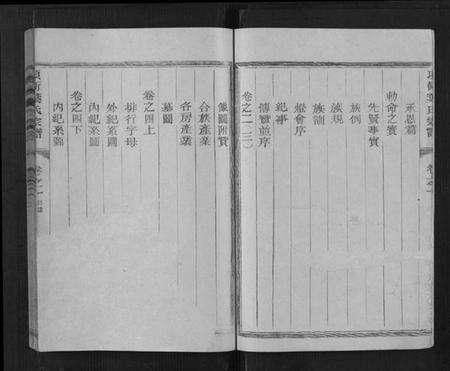 承恩篇
勅命之寶
先賢事實
族例
族規
族訓
紀事
傳贊並序
卷之二
像圖附贊
合族產業
各房產業
墓圖
卷之四上
排行字母
外紀系圖
內紀系圖
卷之四下
內紀系圖